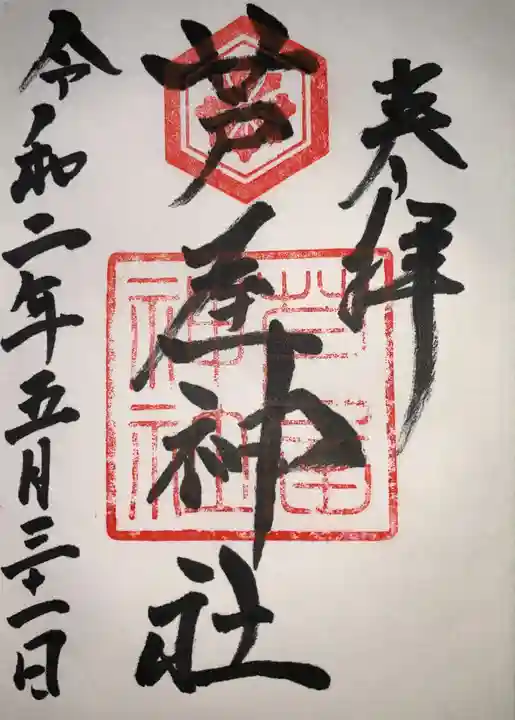 奉拝
芦屋神社
芦屋
神社
令和二年五月三十一日